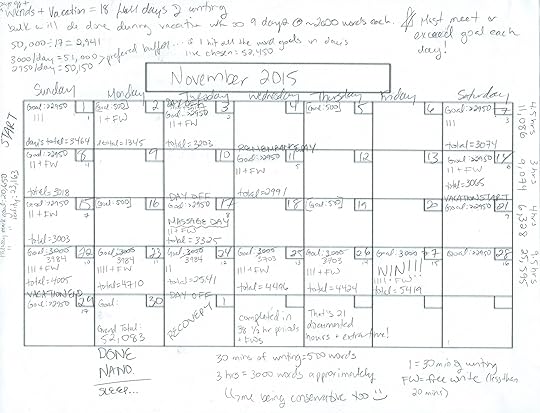 Weekends + Vacation = 18 full days of writing
bulk will be done during vacation wk so 9 days @ ~2000 words each.
50,000 ÷ 17 = 2,941
3000/day = 51,000 > preferred buffer... if I hit all the word goals in days
2950/day = 50,150
I've chosen = 52,450
Must meet or
exceed goal each
day!
November 2015
Sunday Monday Tuesday Wednesday Thursday Friday Saturday
START
Goal: 2950 1
III
day's total = 3464
Goal: 500 2
1 + FW
total = 1345
DAY OFF 3
Goal: 2950
II + FW
total = 3203
4
Goal: 500 5
6
Goal: 2950 7
III
total = 3074
4.5 hrs
11,086
Goal: 2950 8
II + FW
total = 3018
9
10
REMEMBRANCE DAY
Goal: 2950 11
II + FW
total = 2991
12
13
Goal: 2950 14
II + FW
total = 3065
3 hrs
9,074
Goal: 2950 15
II + FW
total = 3003
Goal: 500 16
DAY OFF
Goal: 2950 17
MASSAGE DAY
II + FW
total = 3325
Goal: 500 18
19
20
VACATION START
Goal: 2950 21
4 hrs
6,328
Goal: 3000 22
3984
III + FW
total = 4005
Goal: 3000 23
3984
III + FW
total = 4710
Goal: 3000 24
3984
II
total = 2541
Goal: 3000 25
3703
III + FW
total = 4496
Goal: 3000 26
3703
III + FW
total = 4424
Goal: 3000 27
WIN!!!
III + FW
total = 5419
Goal: 2950 28
9.5 hrs
25,595
VACATION END
Goal: 2950 29
Goal: 30
Grand Total:
52,083
DAY OFF 1
RECOVERY
completed in
38 ½ hr periods
+ FWs
That's 21
documented
hours + extra time!
DONE
NANO.
SLEEP...
30 mins of writing = 500 words
3 hrs = 3000 words approximately
(I'm being conservative too
1 = 30 mins of writing
FW = free write (less then
20 mins)